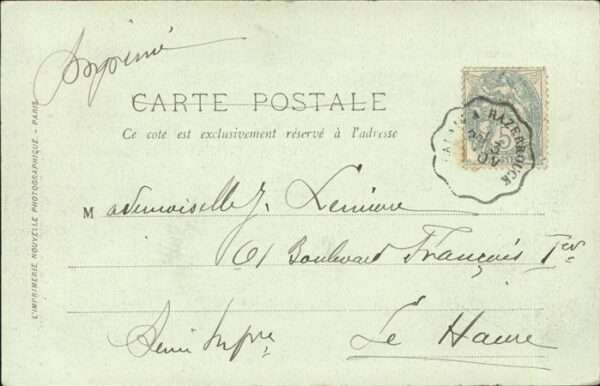 Imprimé
CARTE POSTALE
Ce coté est exclusivement réservé à l'adresse
Mademoiselle J. Lemière
61 Boulevard François Ier
Seine Infre
Le Havre
L'IMPRIMERIE NOUVELLE PHOTOGRAPHIQUE. - PARIS
CALAIS A HAZEBROUCK
5